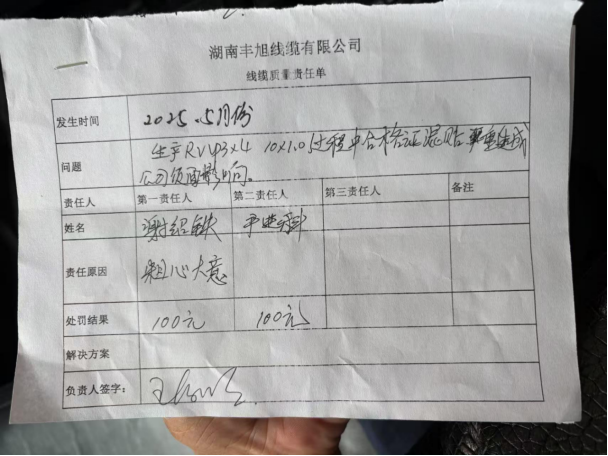 湖南丰旭线缆有限公司
线缆质量责任单
发生时间 2025.5月份
问题 生产RVVP3×4 10×1.0过程中合格证混贴 严重造成
公司负面影响。
责任人 第一责任人 第二责任人 第三责任人 备注
姓名 谢绍
责任原因 粗心大意
处罚结果 100元 100元
解决方案
负责人签字：